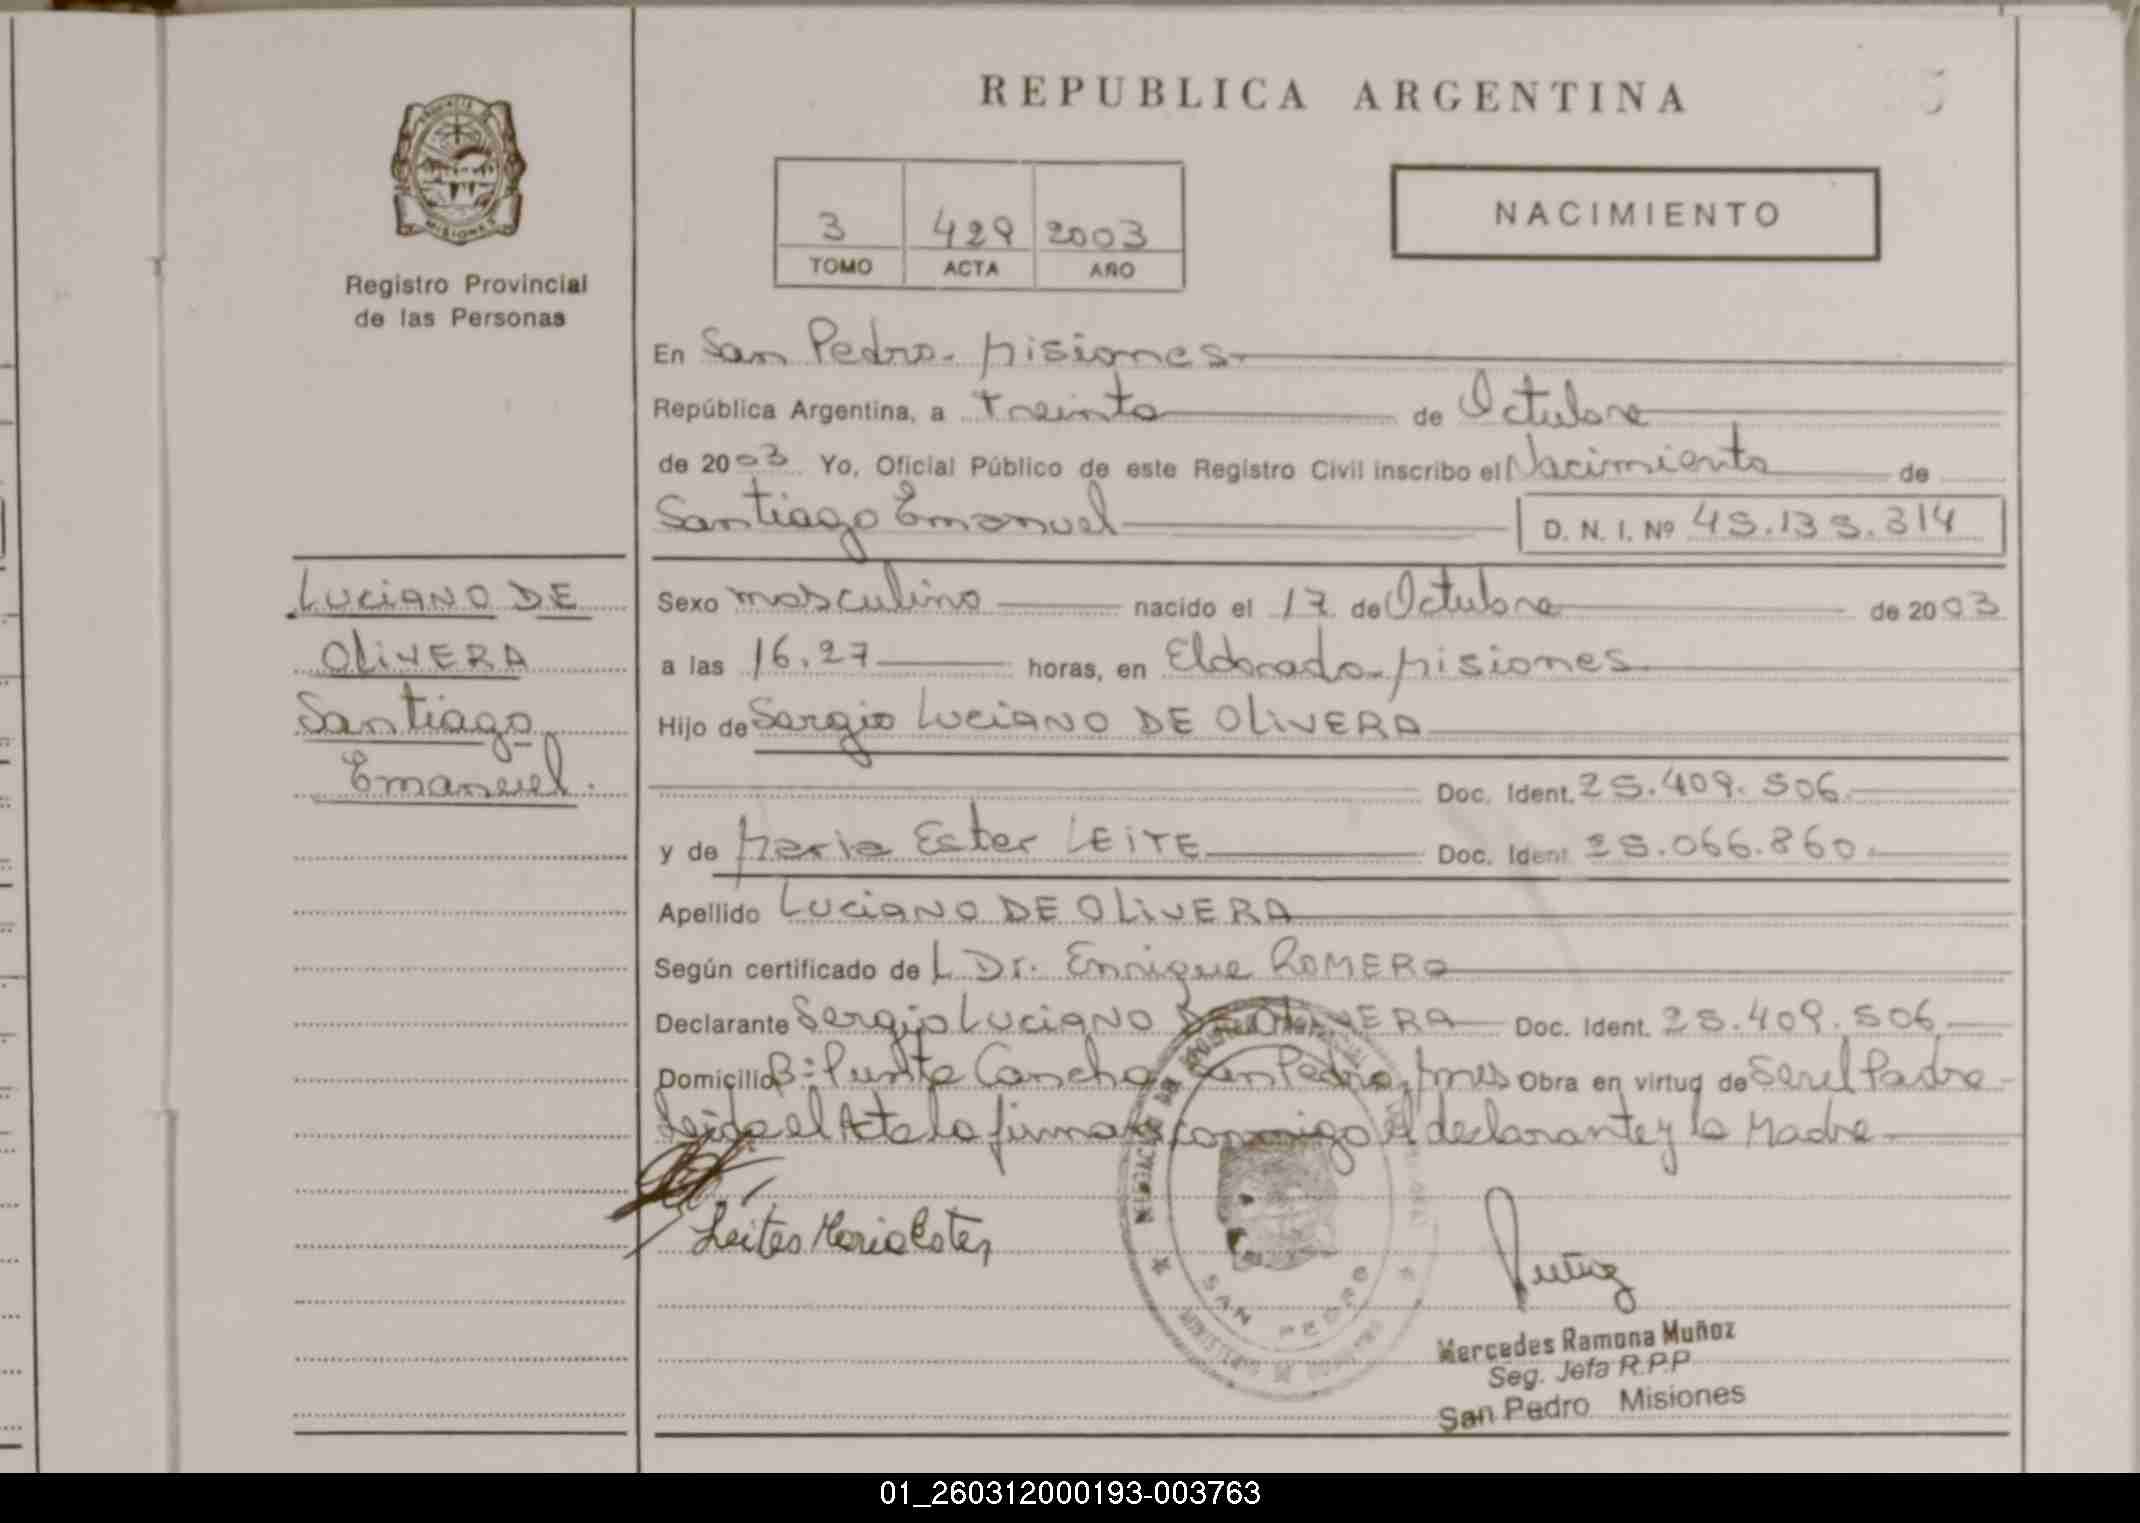 REPUBLICA ARGENTINA
PROVINCIA DE
MISIONES
Registro Provincial
de las Personas
3 429 2003
TOMO ACTA AÑO
NACIMIENTO
En San Pedro - Misiones
República Argentina, a Treinta de Octubre
de 2003 Yo, Oficial Público de este Registro Civil inscribo el Nacimiento de
Santiago Emanuel D. N. I. Nº 45.135.314
LUCIANO DE
OLIVERA
Santiago
Emanuel.
Sexo masculino nacido el 17 de Octubre de 2003
a las 16.27 horas, en Eldorado - Misiones
Hijo de Sergio LUCIANO DE OLIVERA
Doc. Ident. 25.409.506
y de Maria Ester LEITE Doc. Ident. 25.066.860
Apellido LUCIANO DE OLIVERA
Según certificado de L Dr. Enrique ROMERO
Declarante Sergio LUCIANO DE OLIVERA Doc. Ident. 25.409.506
Domicilio Bº Cancha San Pedro, Mnes Obra en virtud de Ser el Padre
Leida el Acta la firma conmigo el declarante y la Madre
Leites Maria Ester
SAN PEDRO
MINISTERIO DE GOBIERNO
Muñoz
Mercedes Ramona Muñoz
Seg. Jefa R.P.P
San Pedro Misiones
01_260312000193-003763